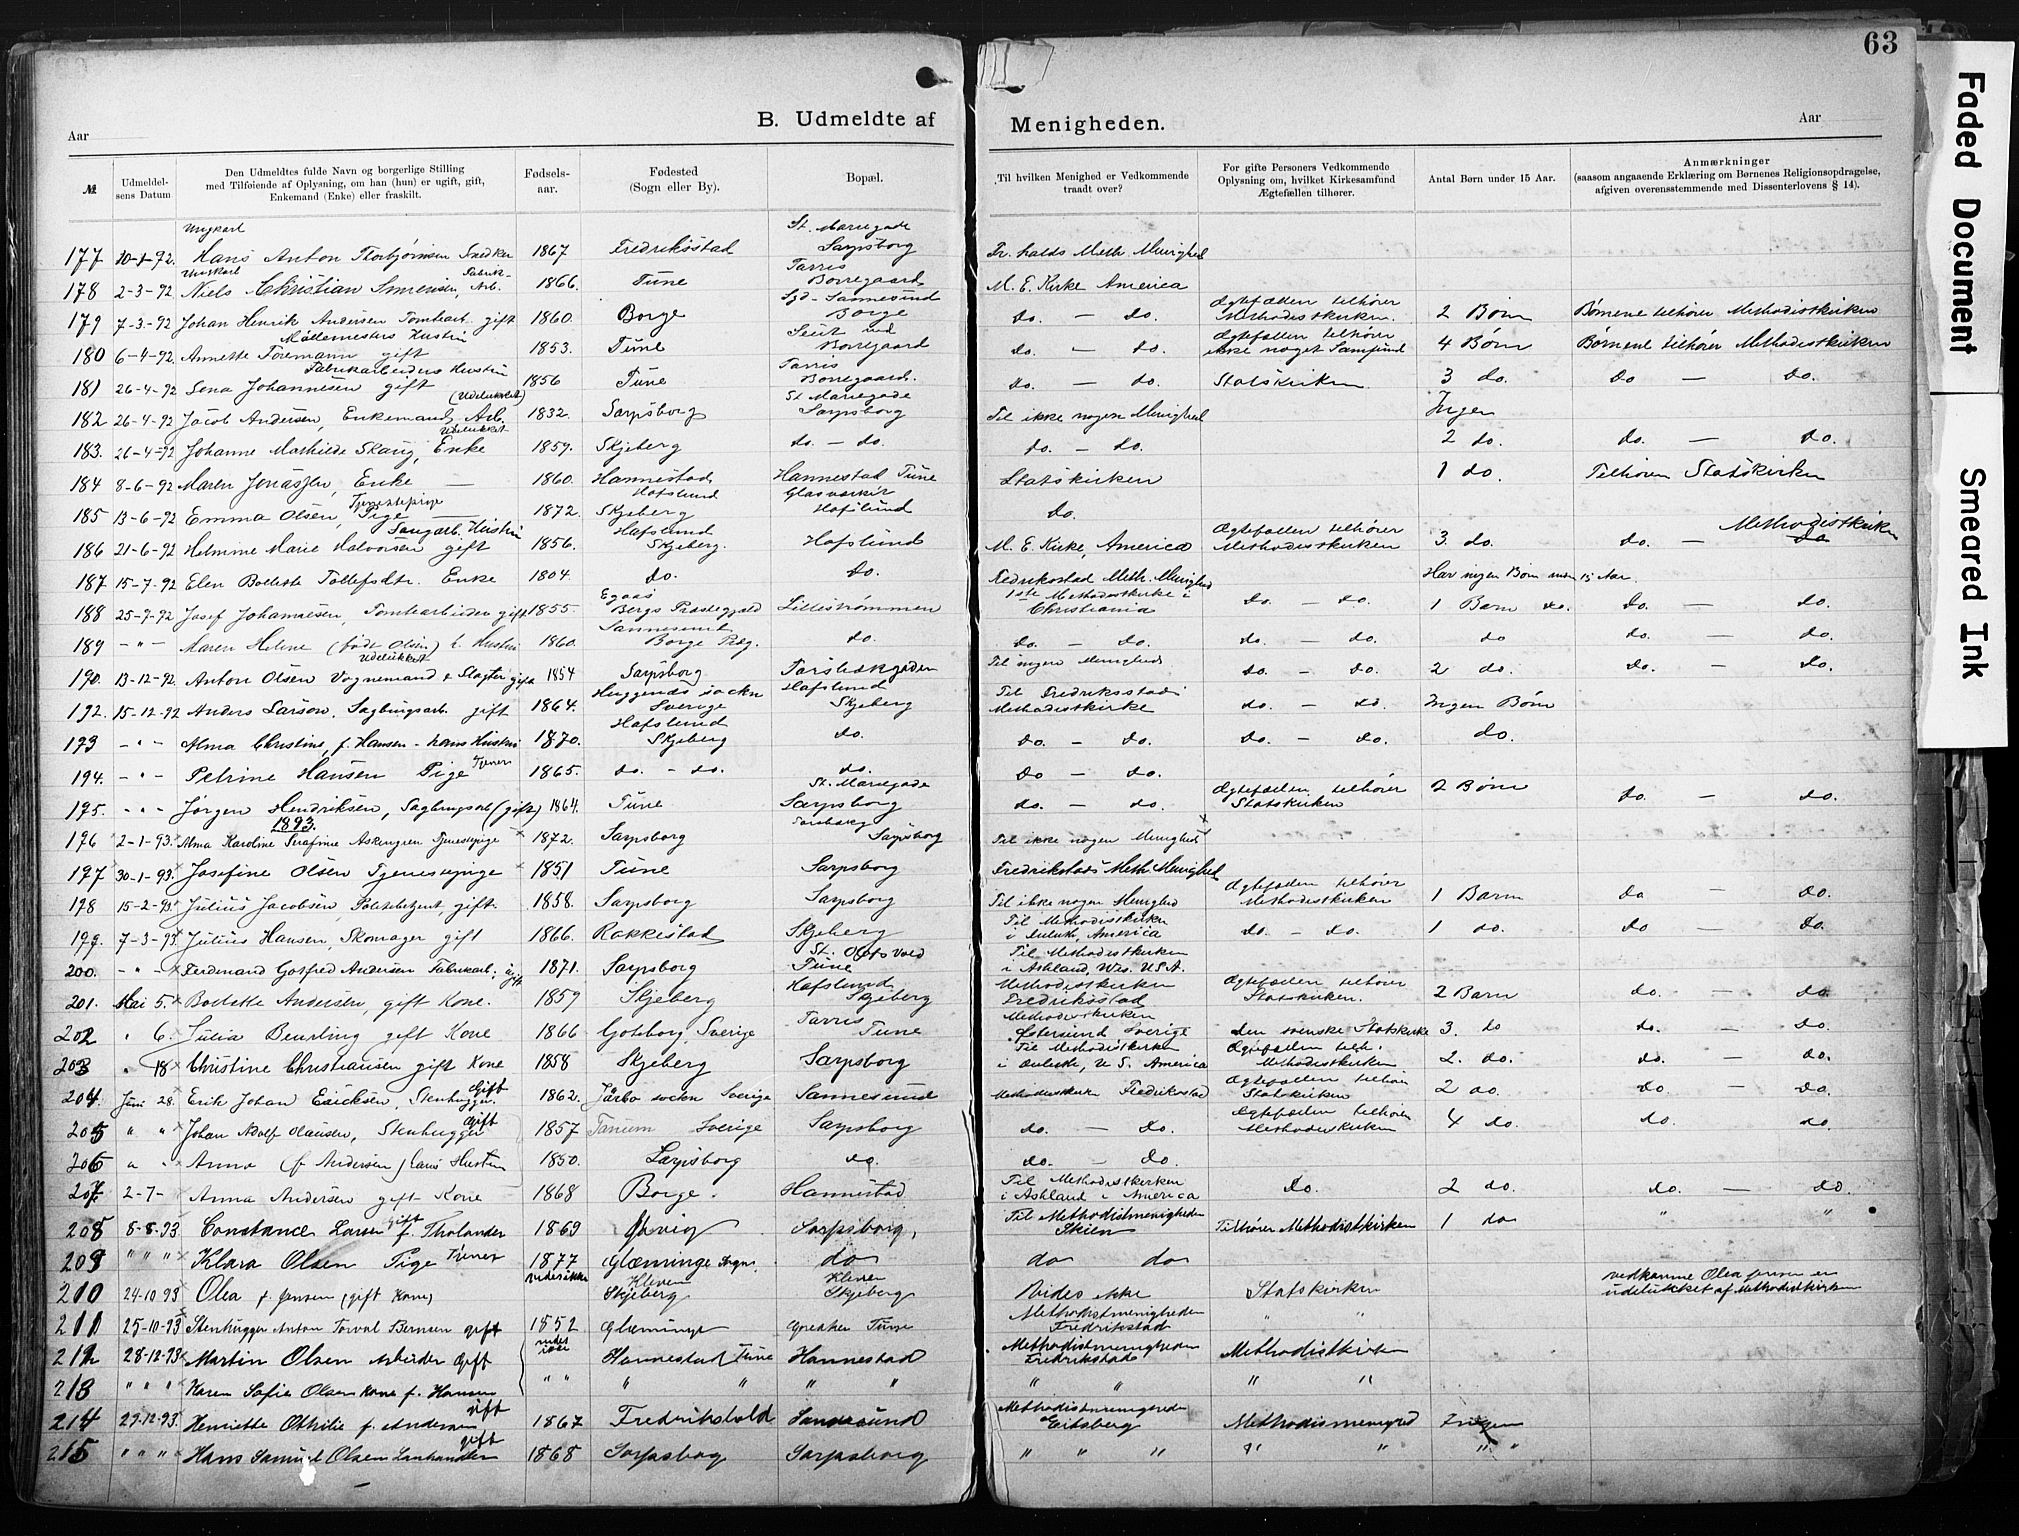 63
B. Udmeldte af Menigheden.
Aar
Aar
№
Udmeldelsens Datum
Den Udmeldtes fulde Navn og borgerlige Stilling
med Tilføiende af Oplysning, om han (hun) er ugift, gift,
Enkemand (Enke) eller fraskilt.
Fødsels-
aar.
Fødested
(Sogn eller By).
Bopæl.
Til hvilken Menighed er Vedkommende
traadt over?
For gifte Personers Vedkommende
Oplysning om, hvilket Kirkesamfund
Ægtefællen tilhører.
Antal Børn under 15 Aar.
Anmærkninger
(saasom angaaende Erklæring om Børnenes Religionsopdragelse,
afgiven overensstemmende med Dissenterlovens § 14).
Ungkarl St. Mariegade
177 10-1-92. Hans Anton Thorbjørnsen Snedker 1867 Fredriksstad Sarpsborg Fr. halds Meth. Menighed
Ungkarl Fabrik- Tarris
178 2-3-92 Niels Christian Simensen, Arb. 1866. Tune Borregaard M. E. Kirke America
179 7-3-92 Johan Henrik Andersen Tomtearb. gift 1860. Borge Sannesund Borge do. — do. Ægtefællen tilhører Methodistkirken. 2 Børn Børnene tilhører Methodistkirken
Møllemesters Hustru
180 6-4-92. Annette Foremann gift 1853. Tune Borregaard do. — do. Ægtefællen tilhører ikke noget Samfund 4 Børn Børnene tilhører Methodistkirken
Fabrikarbeiders Hustru Tarris
181 26-4-92 Lena Johannesen gift 1856 Tune Borregaard. do. — do. Statskirken 3 do. do — do.
(Udelukket) St Mariegade
182 26-4-92 Jacob Andersen, Enkemand, Arb. 1832. Sarpsborg Sarpsborg Til ikke nogen Menighed Ingen
Udelukket
183. 26-4-92 Johanne Mathilde Skaug, Enke 1859. Skjeberg do. — do. do. — do. 2 do. do. — do.
184 8-6-92 Maren Jonassen, Enke — 1860. Hannestad Hannestad Tune Statskirken 1 do. Tilhører Statskirken
Tjenestepige Hafslund Glasværket
185 13-6-92 Emma Olsen, Pige 1872. Skjeberg Hafslund do.
Saugarb. Hustru Hafslund
186 21-6-92 Helmine Marie Halvorsen gift 1856. Skjeberg. Hafslund M. E. Kirke, America Ægtefællen tilhører Methodistkirken 3 do. do. — Methodistkirk
187 15-7-92 Elen Bollette Tollefsdtr. Enke 1804. do. do. Fredrikstad Meth. Menighed Har ingen Børn under 15 Aar.
188 25-7-92 Josef Johannesen, Tomtearbeider gift 1855. Bergs Præstegjæld Lillestrømmen 1ste Methodistkirke i Christiania do. — do. 1 Barn do. do. — do.
189 - " - Maren Helene (født Olsen) h. Hustru 1860. Sannesund Borge Pstg. do. do. — do. do. — do. do do. — do.
Udelukket
190. 13-12-92. Anton Olsen Vognmand & Slagter gift 1854 Sarpsborg Torsbækgaden Til ingen Menighed do. — do. 2 do. do. — do.
192. 15-12-92 Anders Larson, Sagbrugsarb. gift 1864. Sverige Hafslund Skjeberg Til Fredriksstads Methodistkirke do. — do. Ingen Børn
193 - " - Alma Christine, f. Hansen - hans Hustru 1870. Hafslund Skjeberg do. do. — do. do. — do. do.
194. - " - Petrine Hansen Pige Tjener 1865. do. - do. do. do — do.
195. - " - Jørgen Hendriksen, Sagbrugsarb (gift) 1864. Tune St. Mariegade Sarpsborg do. — do. Ægtefællen tilhører Statskirken 2 Børn do. — do.
1893.
196 2-1-93. Alma Karoline Serafine Askengren Tjenestepige 1872. Sarpsborg Sarpsborg Til ikke nogen Menighed
197 30-1-93. Josefine Olsen Tjenestepige 1851 Tune Sarpsborg Fredrikstads Meth. Menighed
198 15-2-93 Julius Jacobsen, Politibetjent, gift. 1858. Sarpsborg Sarpsborg Til ikke nogen Menighed Ægtefællen tilhører Methodistkirken 1 Barn do — do.
199. 7-3-93 Julius Hansen, Skomager gift 1866. Rakkestad Skjeberg Til Methodistkirken i Duluth, America do. - do. 1 do. do — do.
200. - " - Ferdinand Gotfred Andersen Fabrikarb. ugift 1871. Sarpsborg St. Olofs Vold Tune Til Methodistkirken i Ashland, Wis. U.S.A.
201. Mai 5. Bollette Andersen, gift Kone. 1859 Skjeberg Hafslund Skjeberg Methodistkirken Fredriksstad Ægtefællen tilhører Statskirken. 2 Barn do. — do
202 " 6. Julia Beurling gift Kone 1866 Gøtborg, Sverige Tarris Tune Methodistkirken Østersund Sverige den svenske Statskirke 3. do do. — do.
203 " 18 Christine Christiansen gift Kone 1858 Skjeberg Sarpsborg Til Methodistkirken i Duluth, U S. America Ægtefællen tilh. Methodistkirken 2. do. do. — do.
204 Juni 28. Erik Johan Ericksen, Stenhugger. Gift 1862. Järbo socken Sverige Sannesund Methodistkirken Fredrikstad Ægtefællen tilhører Statskirken 2 do. do. — do.
205 " " Johan Adolf Olausen, Stenhugger gift 1857 Tanum Sverige Sarpsborg do. — do. Ægtefællen tilhører Methodistkirken 4 do. do. do.
206 " " Anna (f. Andersen) hans Hustru 1850. Sarpsborg do. do. — do.
207 2-7- Anna Andersen gift Kone 1868 Borge. Hannestad Til Methodistkirken i Ashland i America do. 2 do. do. — do.
208 8-8-93. Constance Larsen gift f. Tholander 1869 Gjøvig Sarpsborg, Til Methodistmenigheden Skien Tilhører Methodistkirken 1 do " "
209 " " " Klara Olsen Pige Tjener 1877 Glæminge Sogn. do do do
210 24-10 93 Olea f. Jensen (gift Kone) Kleven Skjeberg Kleven Skjeberg Vides ikke Statskirken vedkomne Olea Jensen er udelukket af Methodistkirken
211 25-10-93 Stenhugger Anton Torval Bernsen gift 1852 Glæminge Greaker Tune Methodistmenigheden Fredrikstad " "
212 28-12-93 Martin Olsen Arbeider Gift vides ikke Hannestad Tune Hannestad Methodistmenigheden Fredrikstad Methodistkirken
213 " " " Karen Sofie Olsen Kone f. Hansen " " " " " " " " " "
214 29-12-93. Henriette Othilie f. Andersen gift 1867 Fredrikshald Sannesund Methodistmenigheden Eidsberg Methodismenighed Ingen
215 " " " Hans Samuel Olsen Landhandler gift 1868 Sarpsborg Sarpsborg " " " " " " "
Faded Document
Smeared Ink